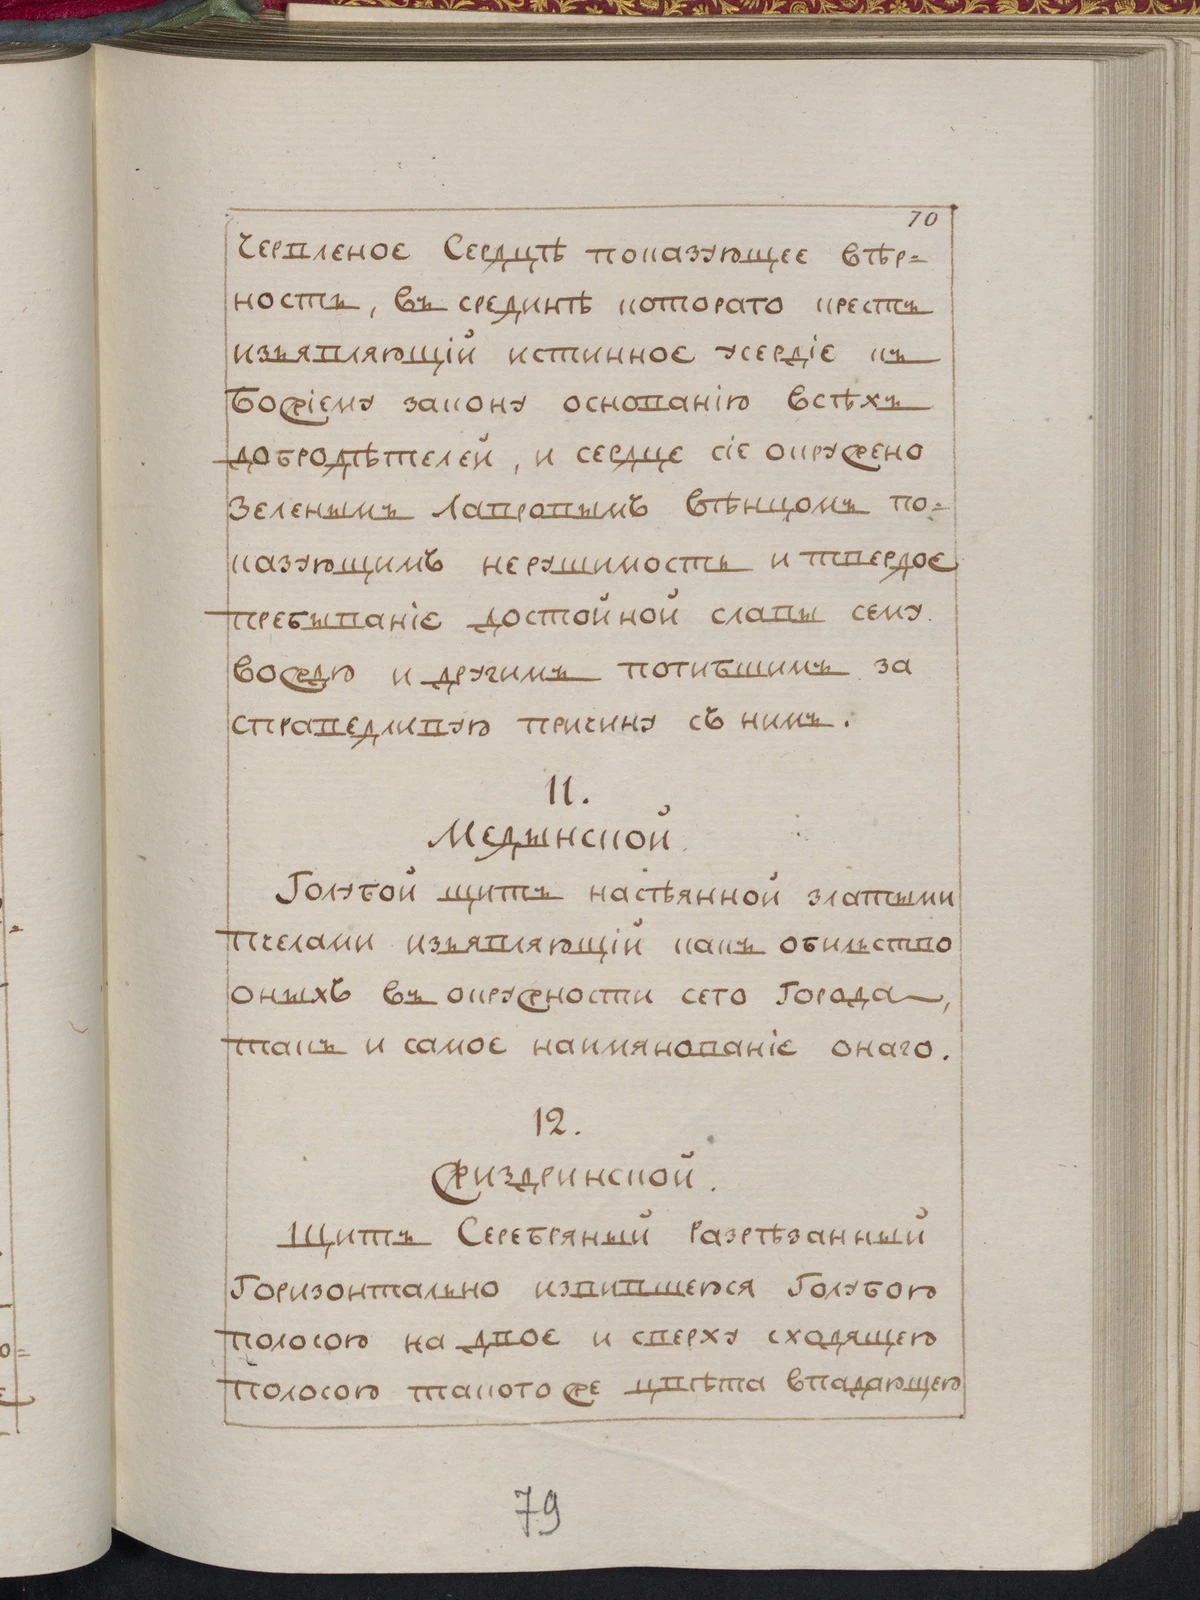 70
Черпленое Сердцѣ показующее вѣр=
ность, въ срединѣ котораго крестъ
изъявляющій истинное усердіе къ
Божіему закону основанію всѣхъ
добродѣтелей, и сердце сіе окружено
Зеленымъ Лавровымъ вѣнцомъ по=
казующимъ нерушимость и твердое
пребываніе достойной славы сему
вождю и другимъ погибшимъ за
справедливую причину съ нимъ.
11.
Медынской.
Голубой щитъ насѣянной златыми
пчелами изъявляющій какъ обильство
оныхъ въ окружности сего Города,
такъ и самое наимянованіе онаго.
12.
Жиздринской.
Щитъ Серебряный Разрѣзанный
Горизонтально извившеюся Голубою
полосою на двое и сверху сходящею
полосою такого же цвѣта впадающею
79